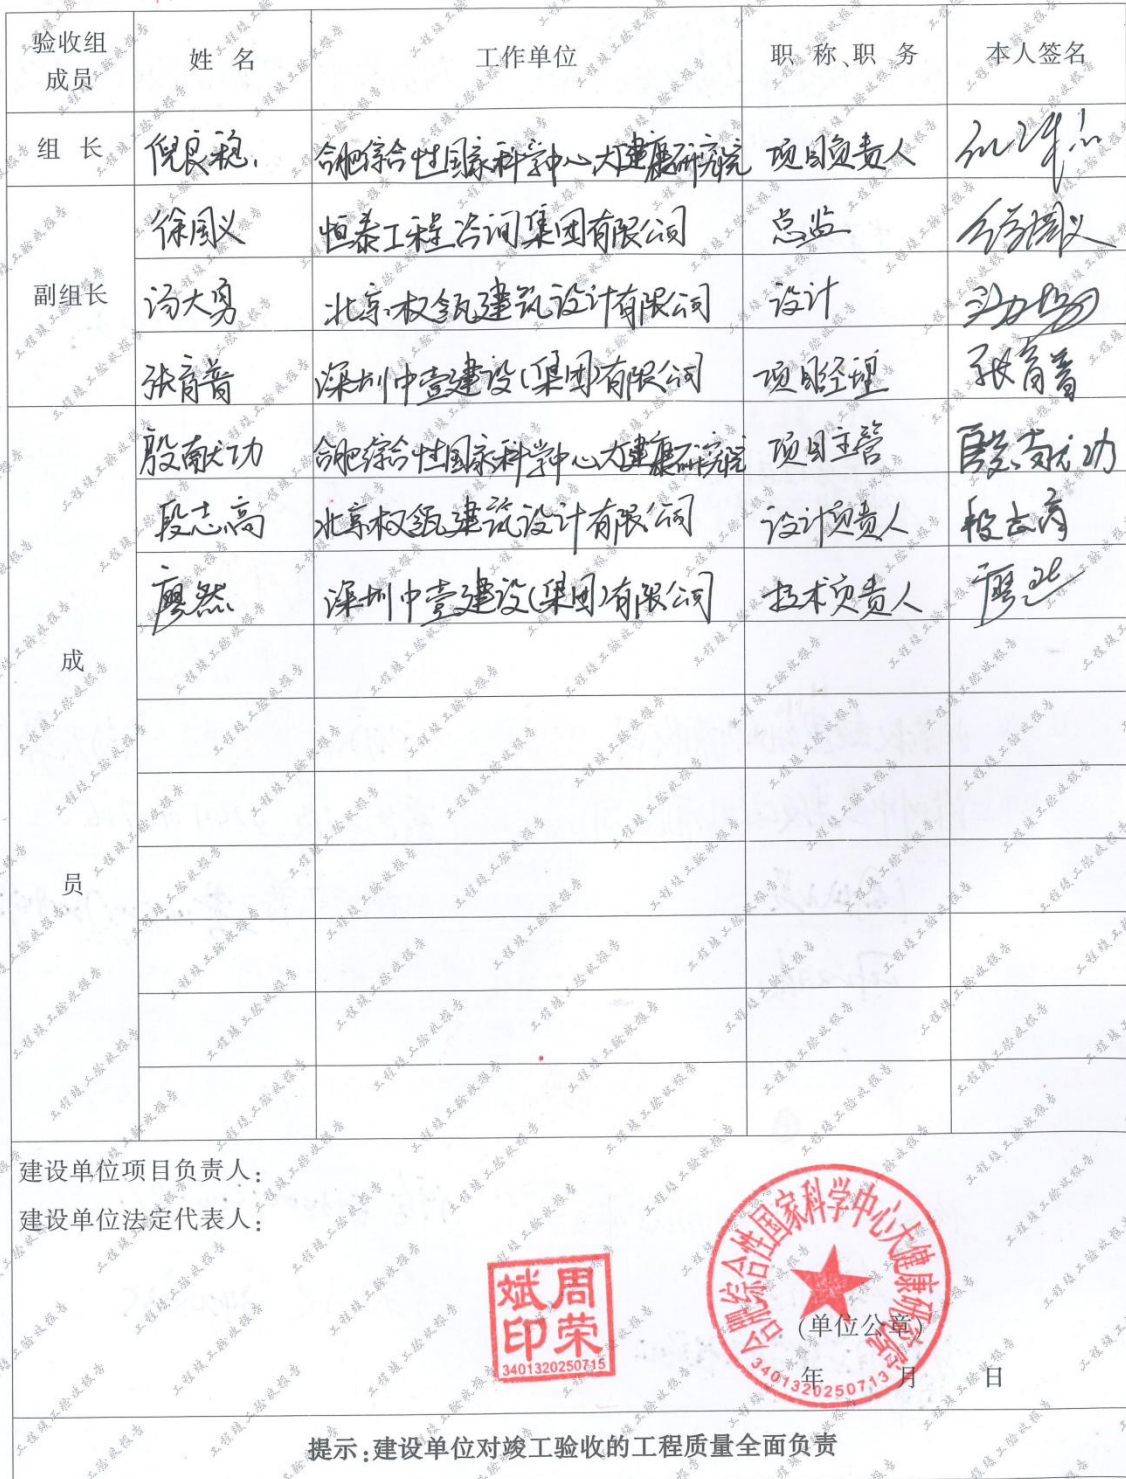 验收组成员 姓 名 工作单位 职 称、职 务 本人签名
组 长 倪良稳 合肥综合性国家科学中心大健康研究院 项目负责人
副组长
徐国义 恒泰工程咨询集团有限公司 总监 徐国义
汤大勇 北京权瓴建筑设计有限公司 设计
张育普 深圳中壹建设(集团)有限公司 项目经理 张育普
成员
殷献功 合肥综合性国家科学中心大健康研究院 项目主管 殷献功
段志高 北京权瓴建筑设计有限公司 设计负责人 段志高
廖然 深圳中壹建设(集团)有限公司 技术负责人 廖然
建设单位项目负责人:
建设单位法定代表人:
周荣斌印
3401320250715
合肥综合性国家科学中心大健康研究院
(单位公章)
3401320250713
年 月 日
提示:建设单位对竣工验收的工程质量全面负责
工程竣工验收报告